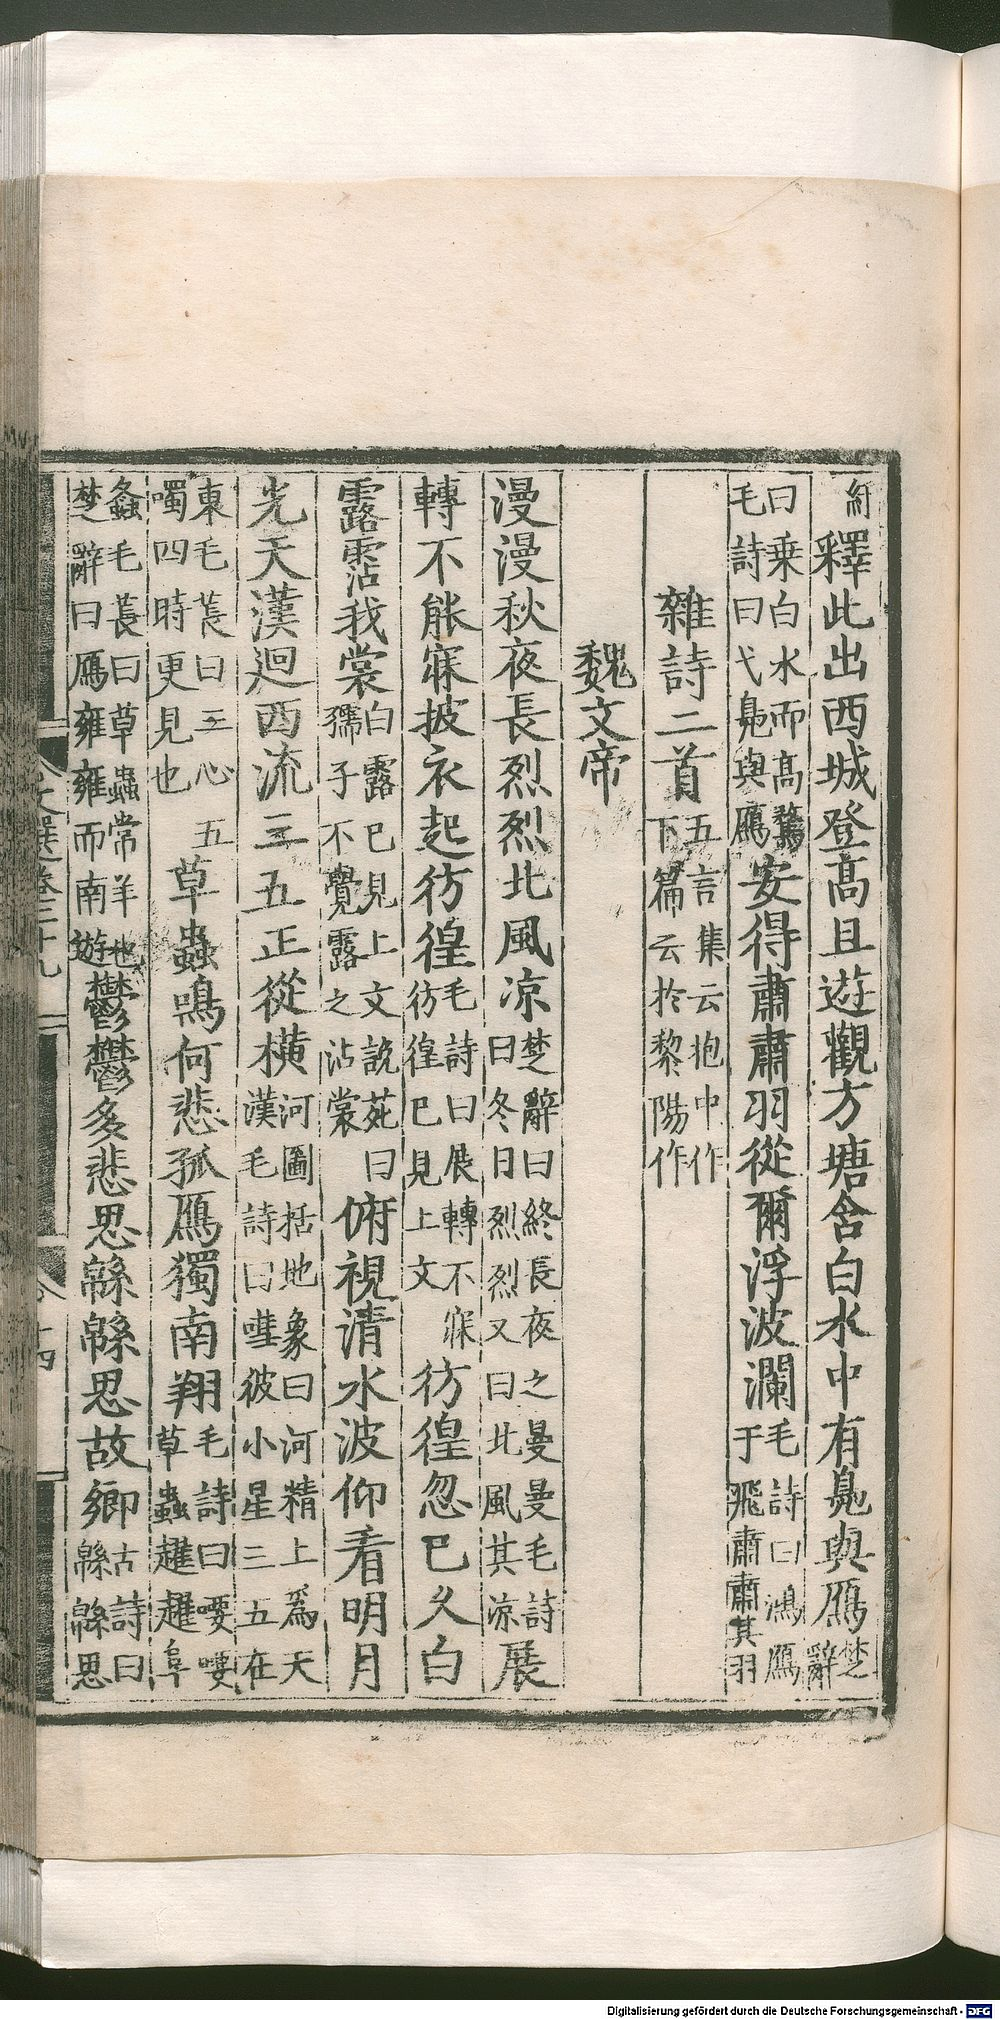 紆釋此出西城登髙且遊觀方塘含白水中有鳬與鴈楚辭
曰乗白水而髙騖毛詩曰弋鳬與鴈安得肅肅羽從爾浮波瀾毛詩曰鴻鴈于飛肅肅其羽
雜詩二首五言集云抱中作下篇云於黎陽作
魏文帝
漫漫秋夜長烈烈北風凉楚辭曰終長夜之曼曼毛詩曰冬日烈烈又曰北風其凉展
轉不能寐披衣起彷徨毛詩曰展轉不寐彷徨已見上文彷徨忽已久白
露霑我裳白露已見上文説苑曰孺子不覺露之沾裳俯視清水波仰看明月
光天漢迴西流三五正從横河圖括地象曰河精上爲天漢毛詩曰嘒彼小星三五在
東毛萇曰三心五噣四時更見也草蟲鳴何悲孤鴈獨南翔毛詩曰喓喓草蟲趯趯阜
螽毛萇曰草蟲常羊也楚辭曰鴈雍雍而南遊鬱鬱多悲思緜緜思故鄉古詩曰緜緜思
文選卷二十九
十四
Digitalisierung gefördert durch die Deutsche Forschungsgemeinschaft - DFG